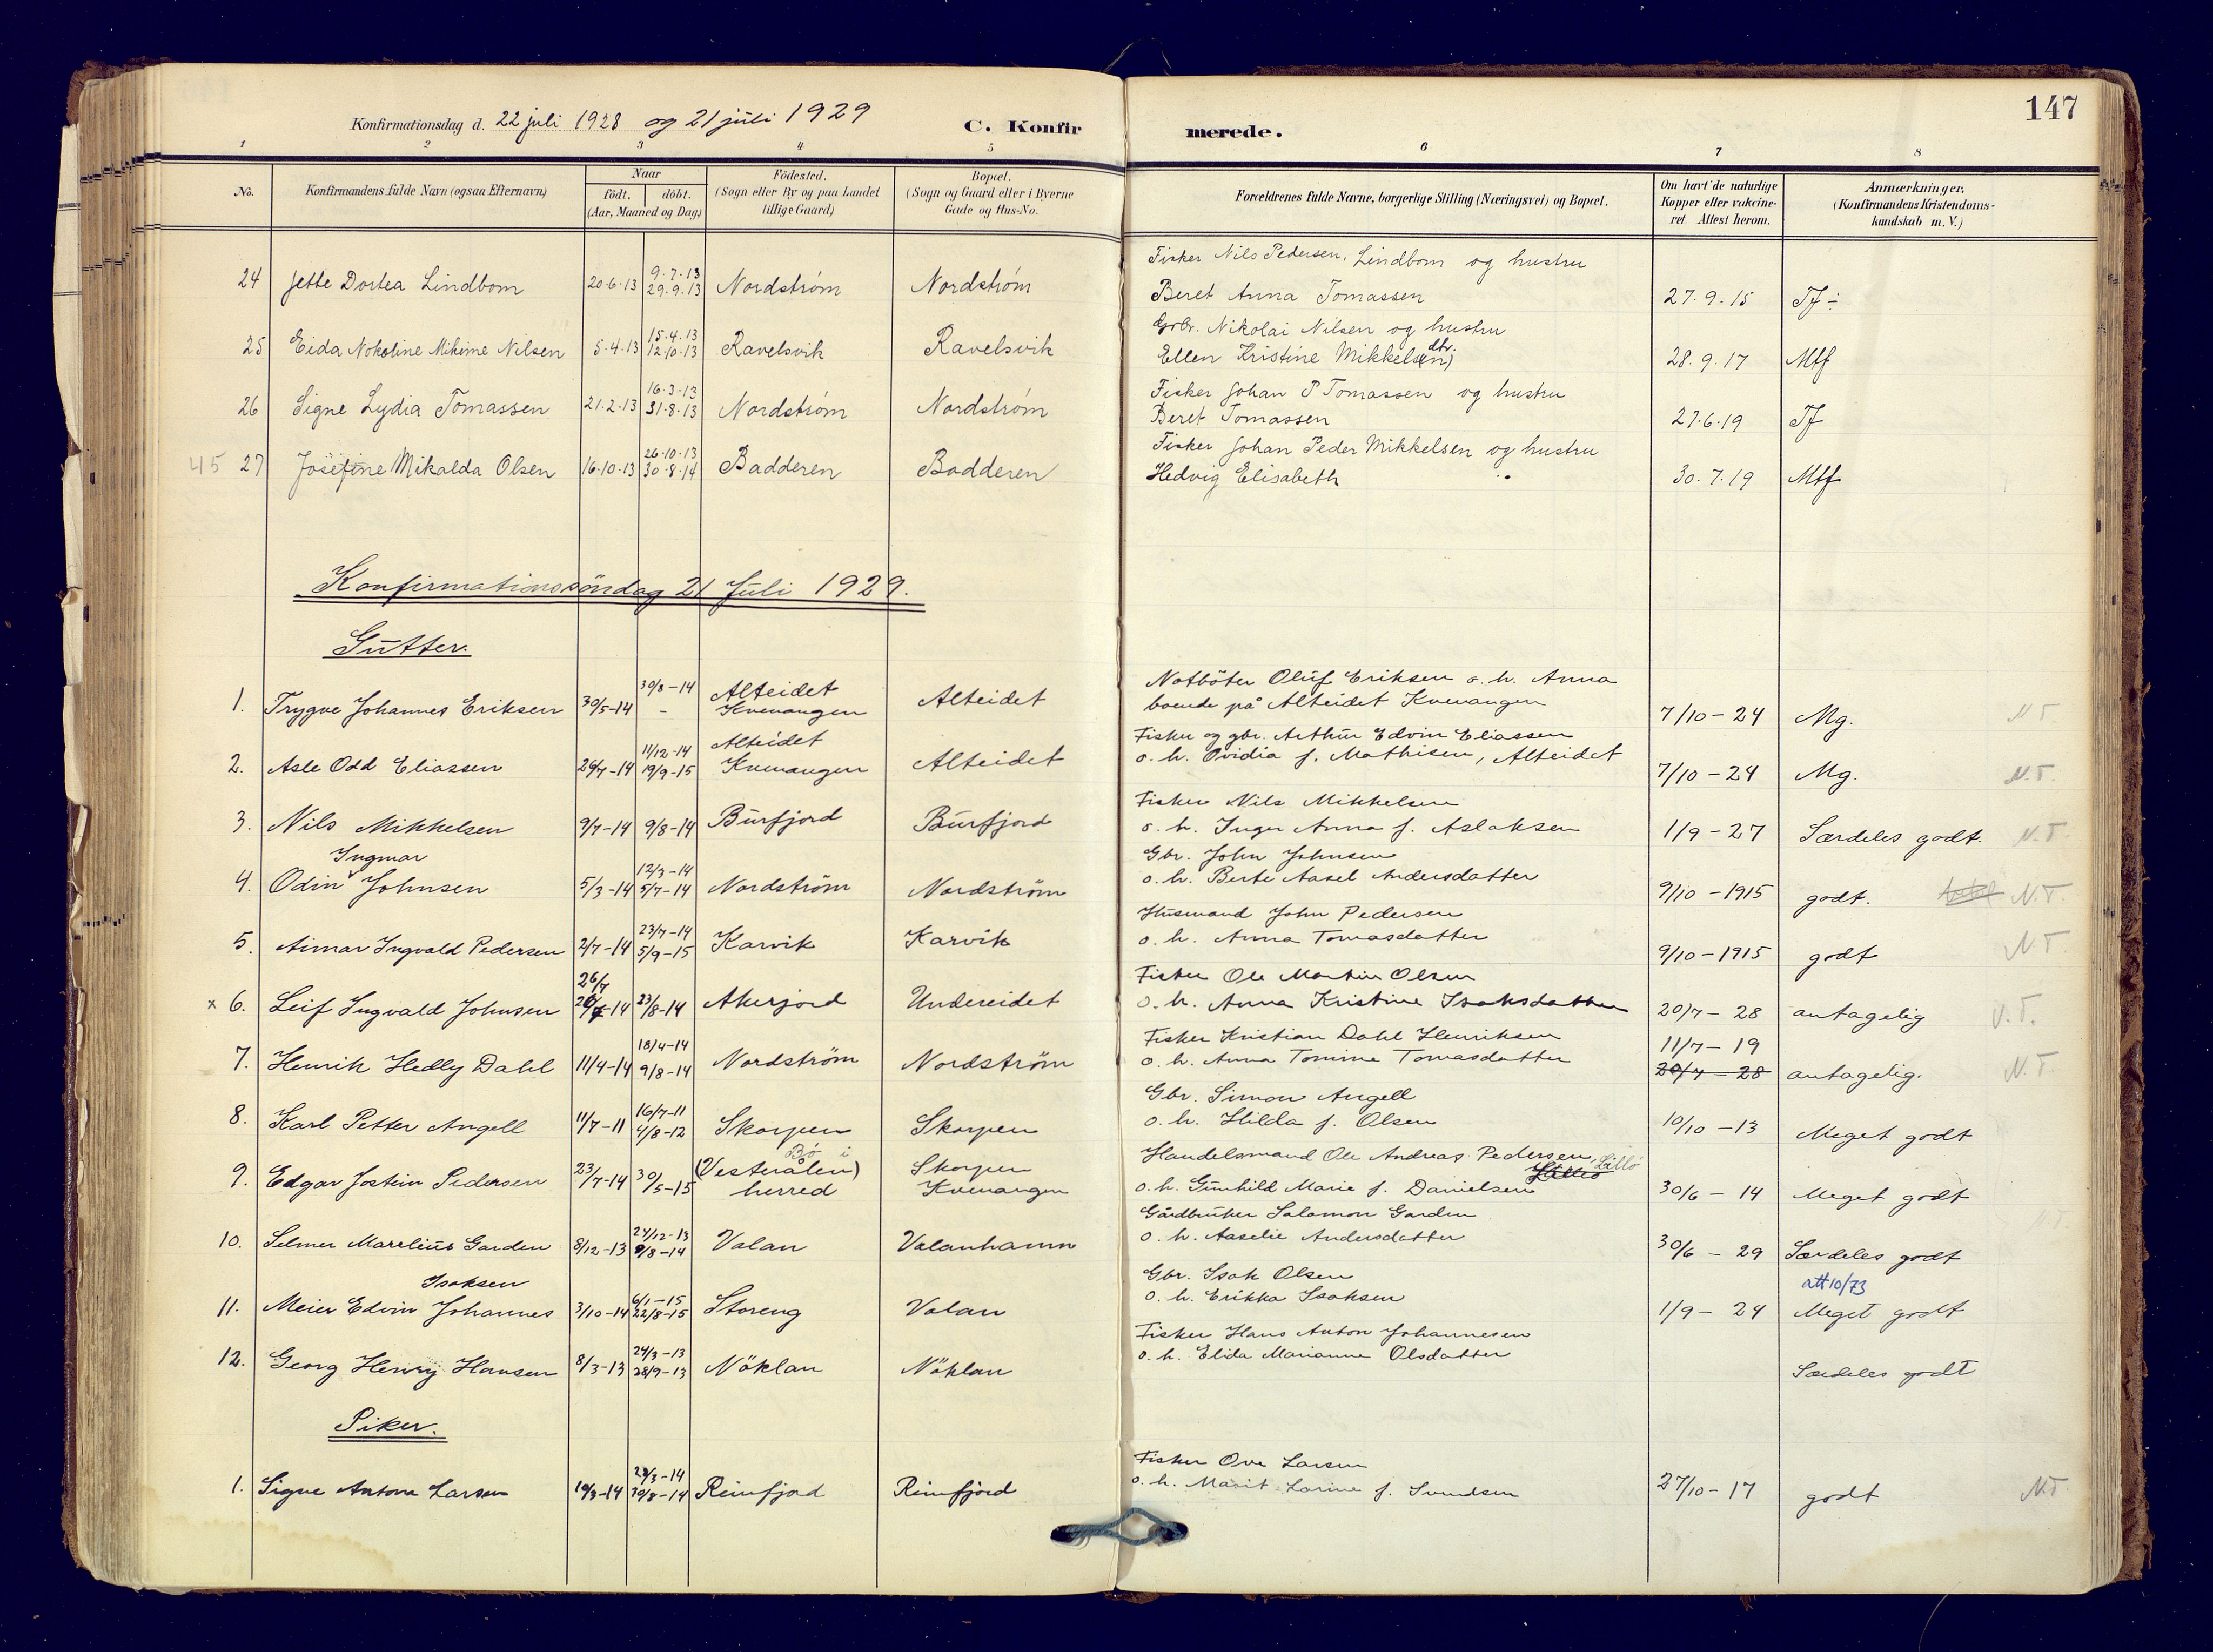 147
Konfirmationsdag d. 22 juli 1928 og 21 juli 1929 C. Konfirmerede.
1 2 3 4 5 6 7 8
No.
Konfirmandens fulde Navn (ogsaa Efternavn)
Naar
födt. döbt.
(Aar, Maaned og Dag)
Födested.
(Sogn eller By og paa Landet
tillige Gaard)
Bopæl.
(Sogn og Gaard eller i Byerne
Gade og Hus-No.
Forældrenes fulde Navne, borgerlige Stilling (Næringsvei) og Bopæl.
Om havt de naturlige
Kopper eller vakcine-
ret Attest herom.
Anmærkninger.
(Konfirmandens Kristendoms-
kundskab m. V.)
Fisker Nils Pedersen Lindbom og hustru
24 Jette Dortea Lindbom 20.6.13 9.7.13 29.9.13 Nordstróm Nordstróm Beret Anna Tomassen 27.9.15 Tf÷
Grbr. Nikolai Nilsen og hustru
25 Eida Nokoline Mikime Nilsen 5.4.13 15.4.13 12.10.13 Ravelsvik Ravelsvik Ellen Kristine Mikkels(en) dtr. 28.9.17 Mtf
Fisker Johan P Tomassen og hustru
26 Signe Lydia Tomassen 21.2.13 16.3.13 31.8.13 Nordstróm Nordstróm Beret Tomassen 27.6.19 Tf
Fisker Johan Peder Mikkelsen og hustru
45 27 Josefine Mikalda Olsen 16.10.13 26.10.13 30.8.14 Badderen Badderen Hedvig Elisabeth 30.7.19 Mtf
Konfirmationssöndag 21 Juli 1929.
Gutter.
Notböter Oluf Eriksen o. h. Anna
1. Trygve Johannes Eriksen 30/5-14 30/8-14 - Alteidet Kvenangen Alteidet boende på Alteidet Kvenangen 7/10-24 Mg. N T
Fisker og gbr. Arthur Edvin Eliassen
2. Asle Odd Eliassen 26/7-14 11/12-14 19/9-15 Alteidet Kvenangen Alteidet o. h. Ovidia f. Mathisen, Alteidet 7/10-24 Mg. N.T.
Fisker Nils Mikkelsen
3. Nils Mikkelsen 9/7-14 9/8-14 Burfjord Burfjord o. h. Inger Anna f. Aslaksen 1/9-27 Særdeles godt. N.T.
Gbr. John Johnsen
4. Odin Ingmar Johnsen 5/3-14 12/3-14 5/7-14 Nordström Nordström o. h. Berte Aasel Andersdatter 9/10-1915 godt. N.T.
Husmand John Pedersen
5. Aimar Ingvald Pedersen 2/7-14 23/7-14 5/9-15 Karvik Karvik o. h. Anna Tomasdatter 9/10-1915 godt N T
Fisker Ole Martin Olsen
x 6. Leif Ingvald Johnsen 26/7 -14 23/8-14 Akerjord Undereidet o. h. Anna Kristine Isaksdatter 20/7-28 antagelig N.T.
Fisker Kristian Dahl Henriksen
7. Henrik Hedly Dahl 11/4-14 18/4-14 9/8-14 Nordström Nordström o. h. Anna Tomine Tomasdatter 11/7-19 20/7-28 antagelig. N.T.
Gbr. Simon Angell
8. Karl Petter Angell 11/7-11 16/7-11 4/8-12 Skorpen Skorpen o. h. Hilda f. Olsen 10/10-13 Meget godt
Handelsmand Ole Andreas Pedersen, Lillö
9. Edgar Jostein Pedersen 23/7-14 30/5-15 Bö i (Vesterålen) herred Skorpen Kvenangen o. h. Gunhild Marie f. Danielsen 30/6-14 Meget godt
Gårdbruker Salamon Garden
10. Selmer Marelius Garden 8/12-13 24/12-13 9/8-14 Valan Valanhamn o. h. Aaselie Andersdatter 30/6-29 Særdeles godt N.T.
att 10/73
Gbr. Isak Olsen
11. Meier Edvin Johannes Isaksen 3/10-14 6/1-15 22/8-15 Storeng Valan o. h. Erikka Isaksen 1/9-24 Meget godt
Fisker Hans Anton Johannesen
12. Georg Henry Hansen 8/3-13 24/3-13 28/9-13 Nöklan Nöklan o. h. Elida Marianne Olsdatter Særdeles godt
Piker.
Fisker Ove Larsen
1. Signe Antona Larsen 10/3-14 29/3-14 30/8-14 Reinfjord Reinfjord o. h. Marit Larine f. Svendsen 27/10-17 godt N.T.